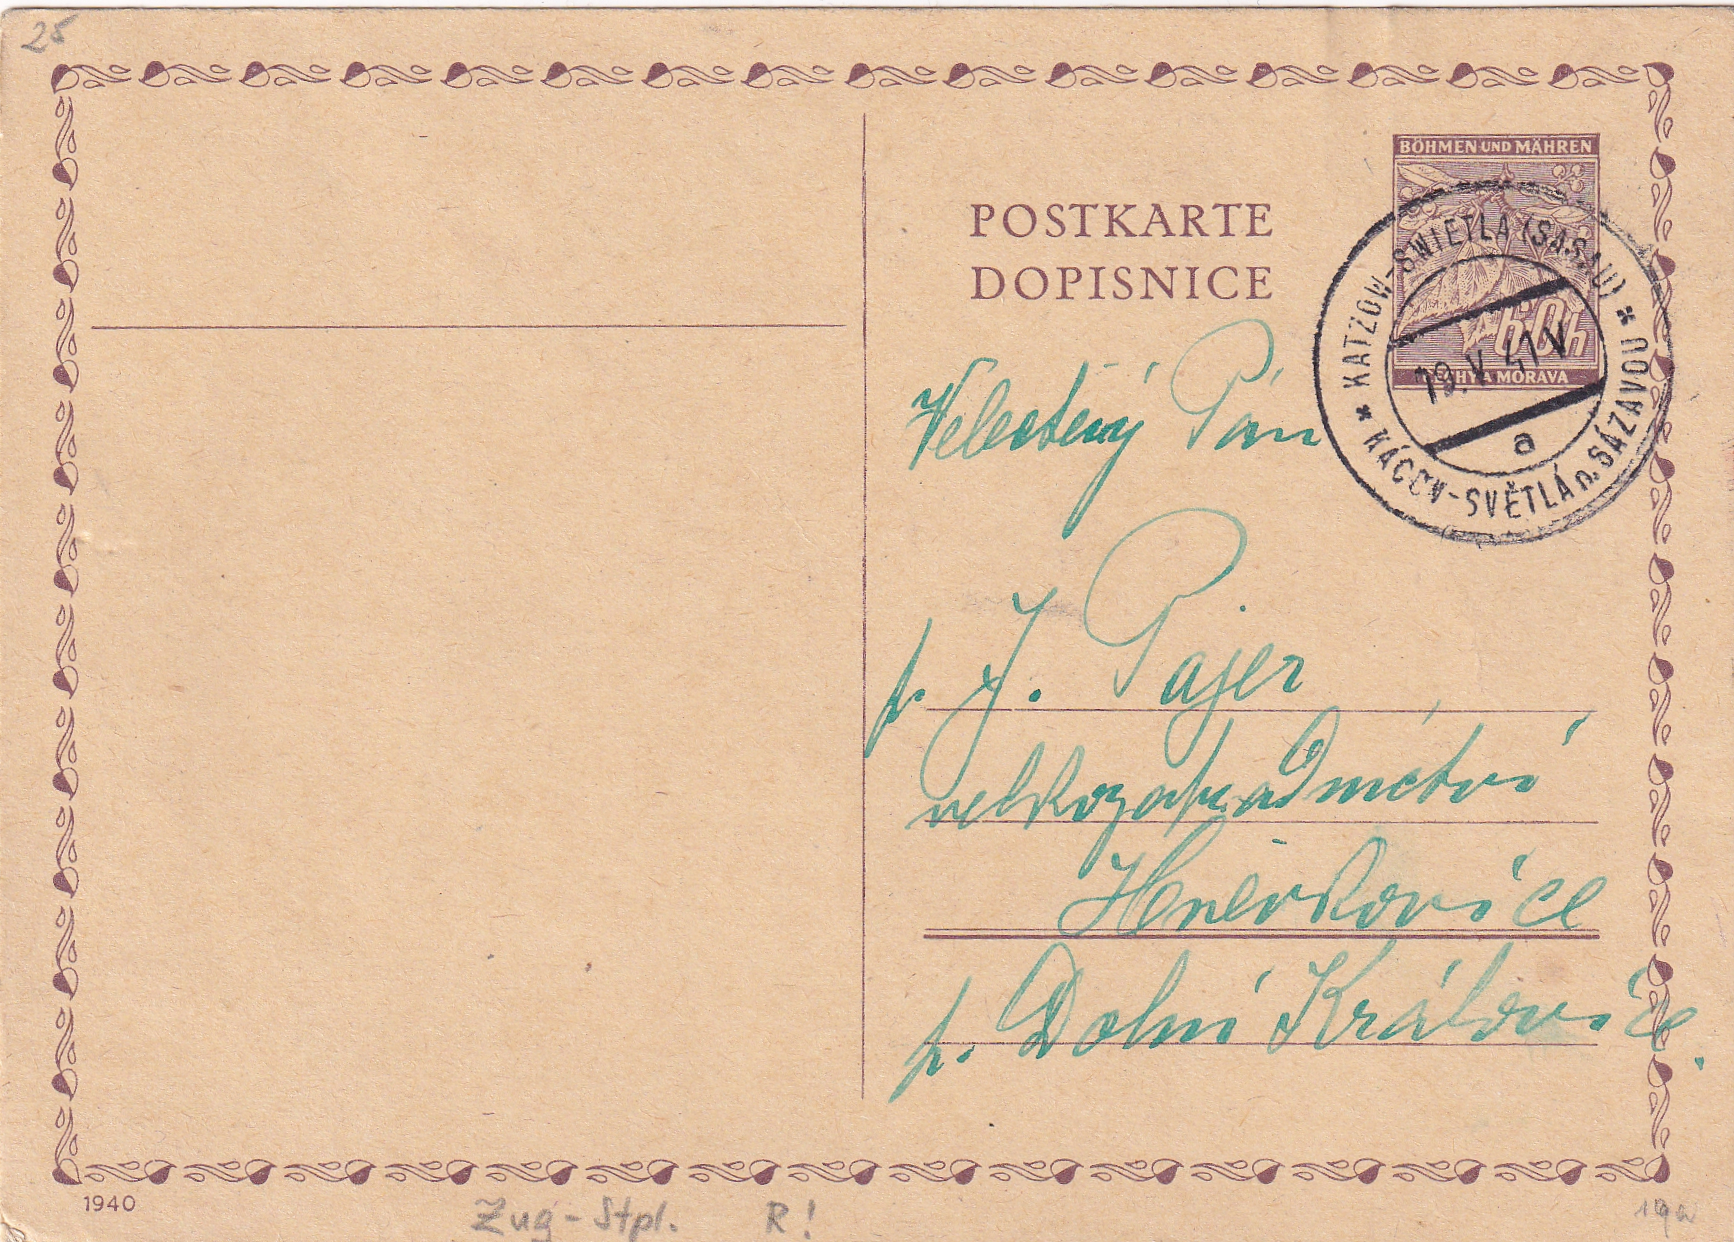 25
BÖHMEN UND MÄHREN
POSTKARTE
DOPISNICE
60h
ČECHY A MORAVA
* KATZOW-SWIETLA (SASAU) *
KÁCOV-SVĚTLÁ n. SÁZAVOU
19.V.41 V
a
Velectěný Pán
p. J. Pajer
velkozahradnictví
Hněvkovice
p. Dolní Královice.
1940
Zug-Stpl. R!